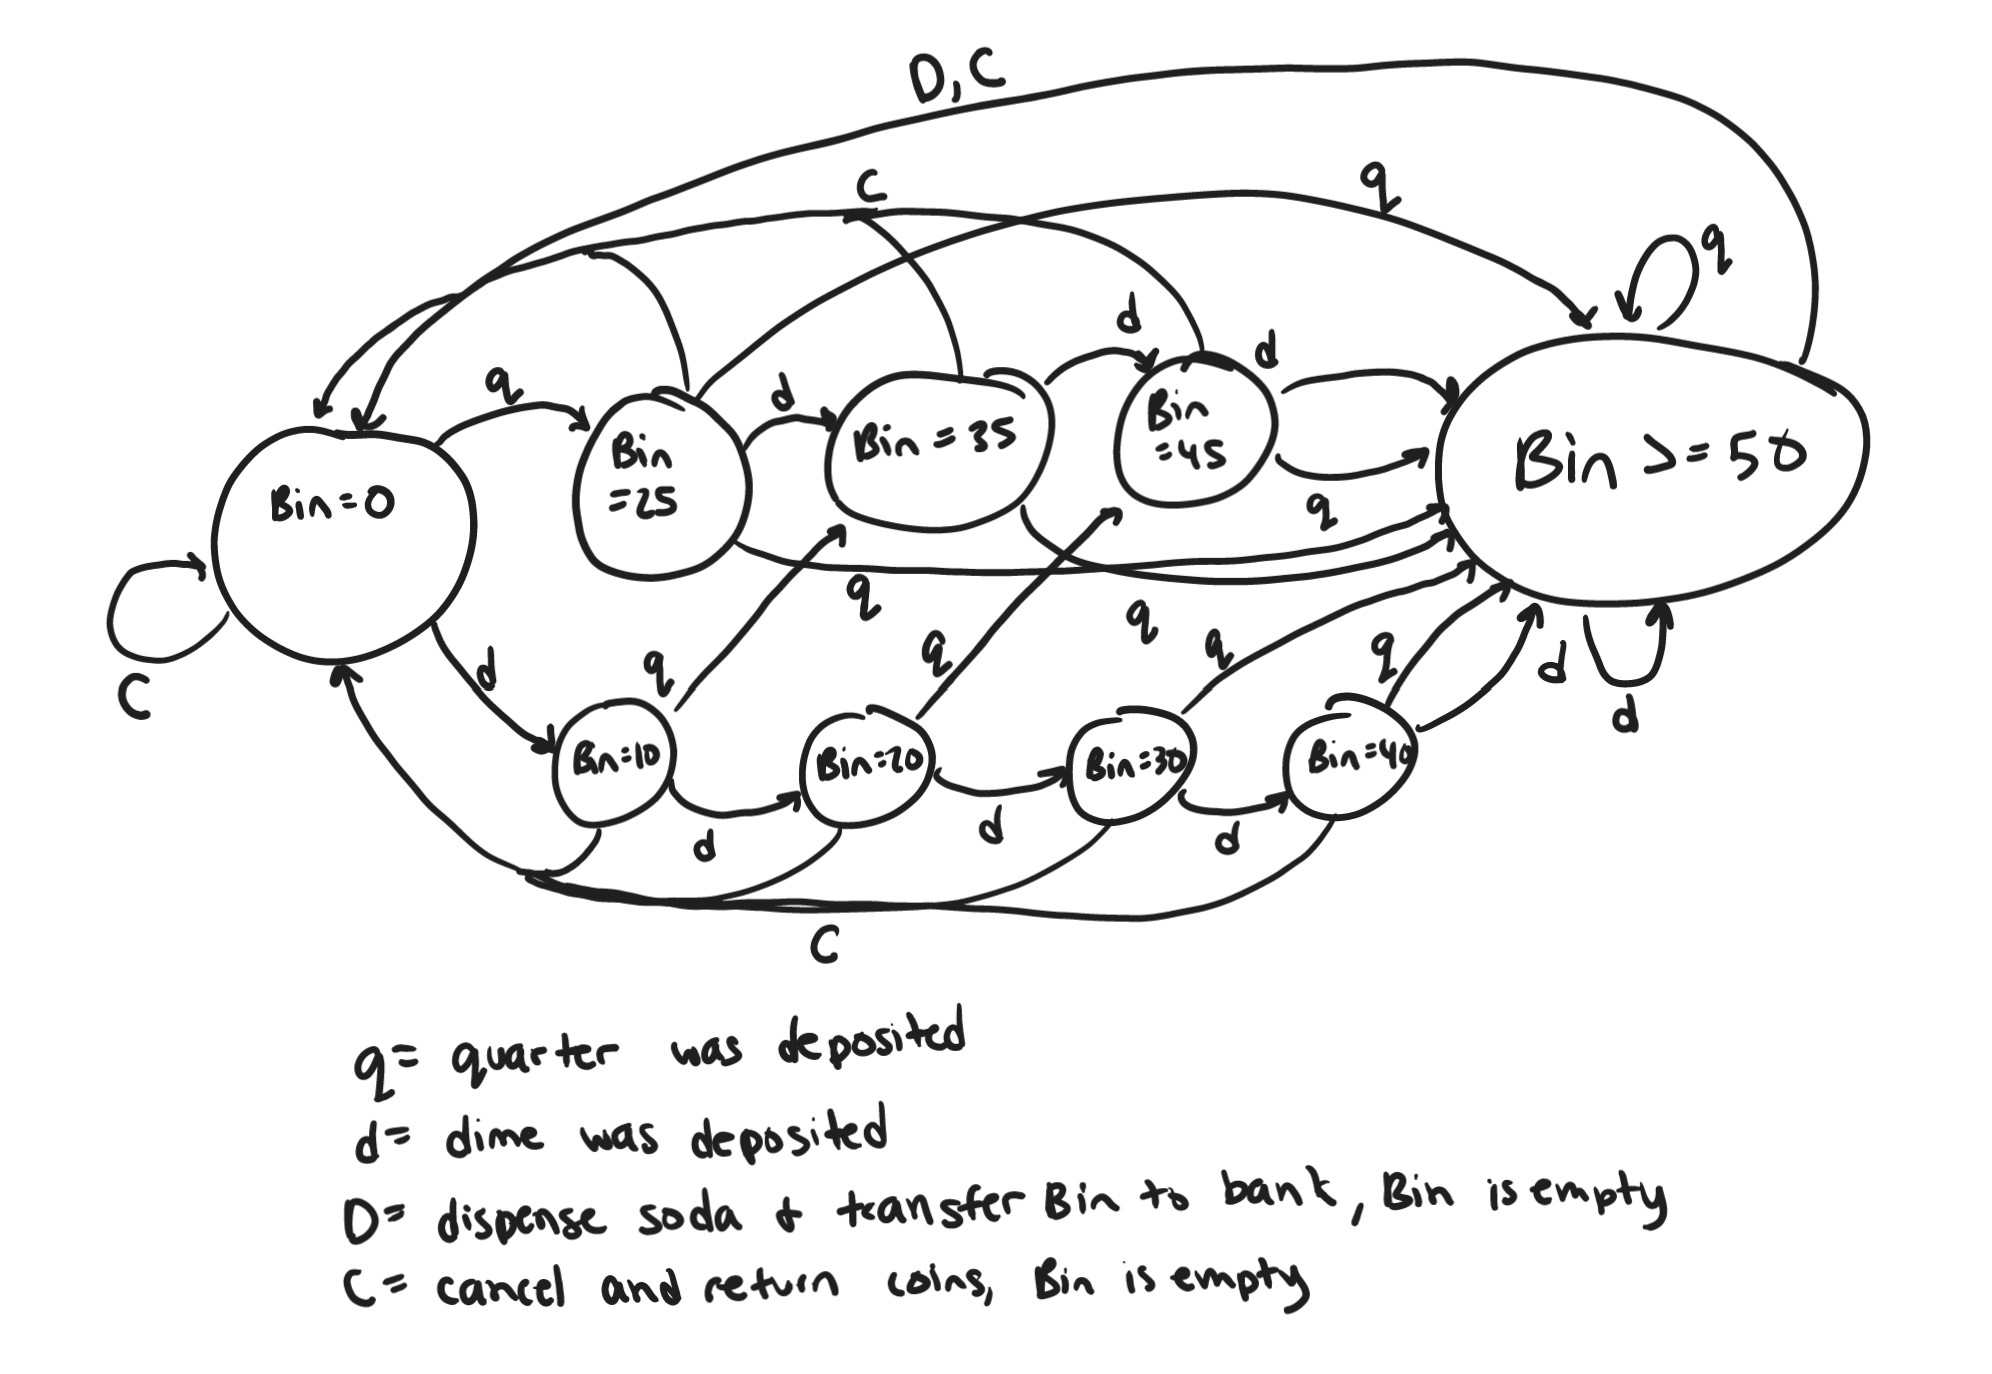 D, C
C
q
q
q
d
d
d
Bin=0
Bin
=25
Bin = 35
Bin
=45
Bin >= 50
q
C
d
q
q
q
q
q
q
d
d
Bin=10
Bin=20
Bin=30
Bin=40
d
d
d
C
q= quarter was deposited
d= dime was deposited
D= dispense soda & transfer Bin to bank, Bin is empty
C= cancel and return coins, Bin is empty